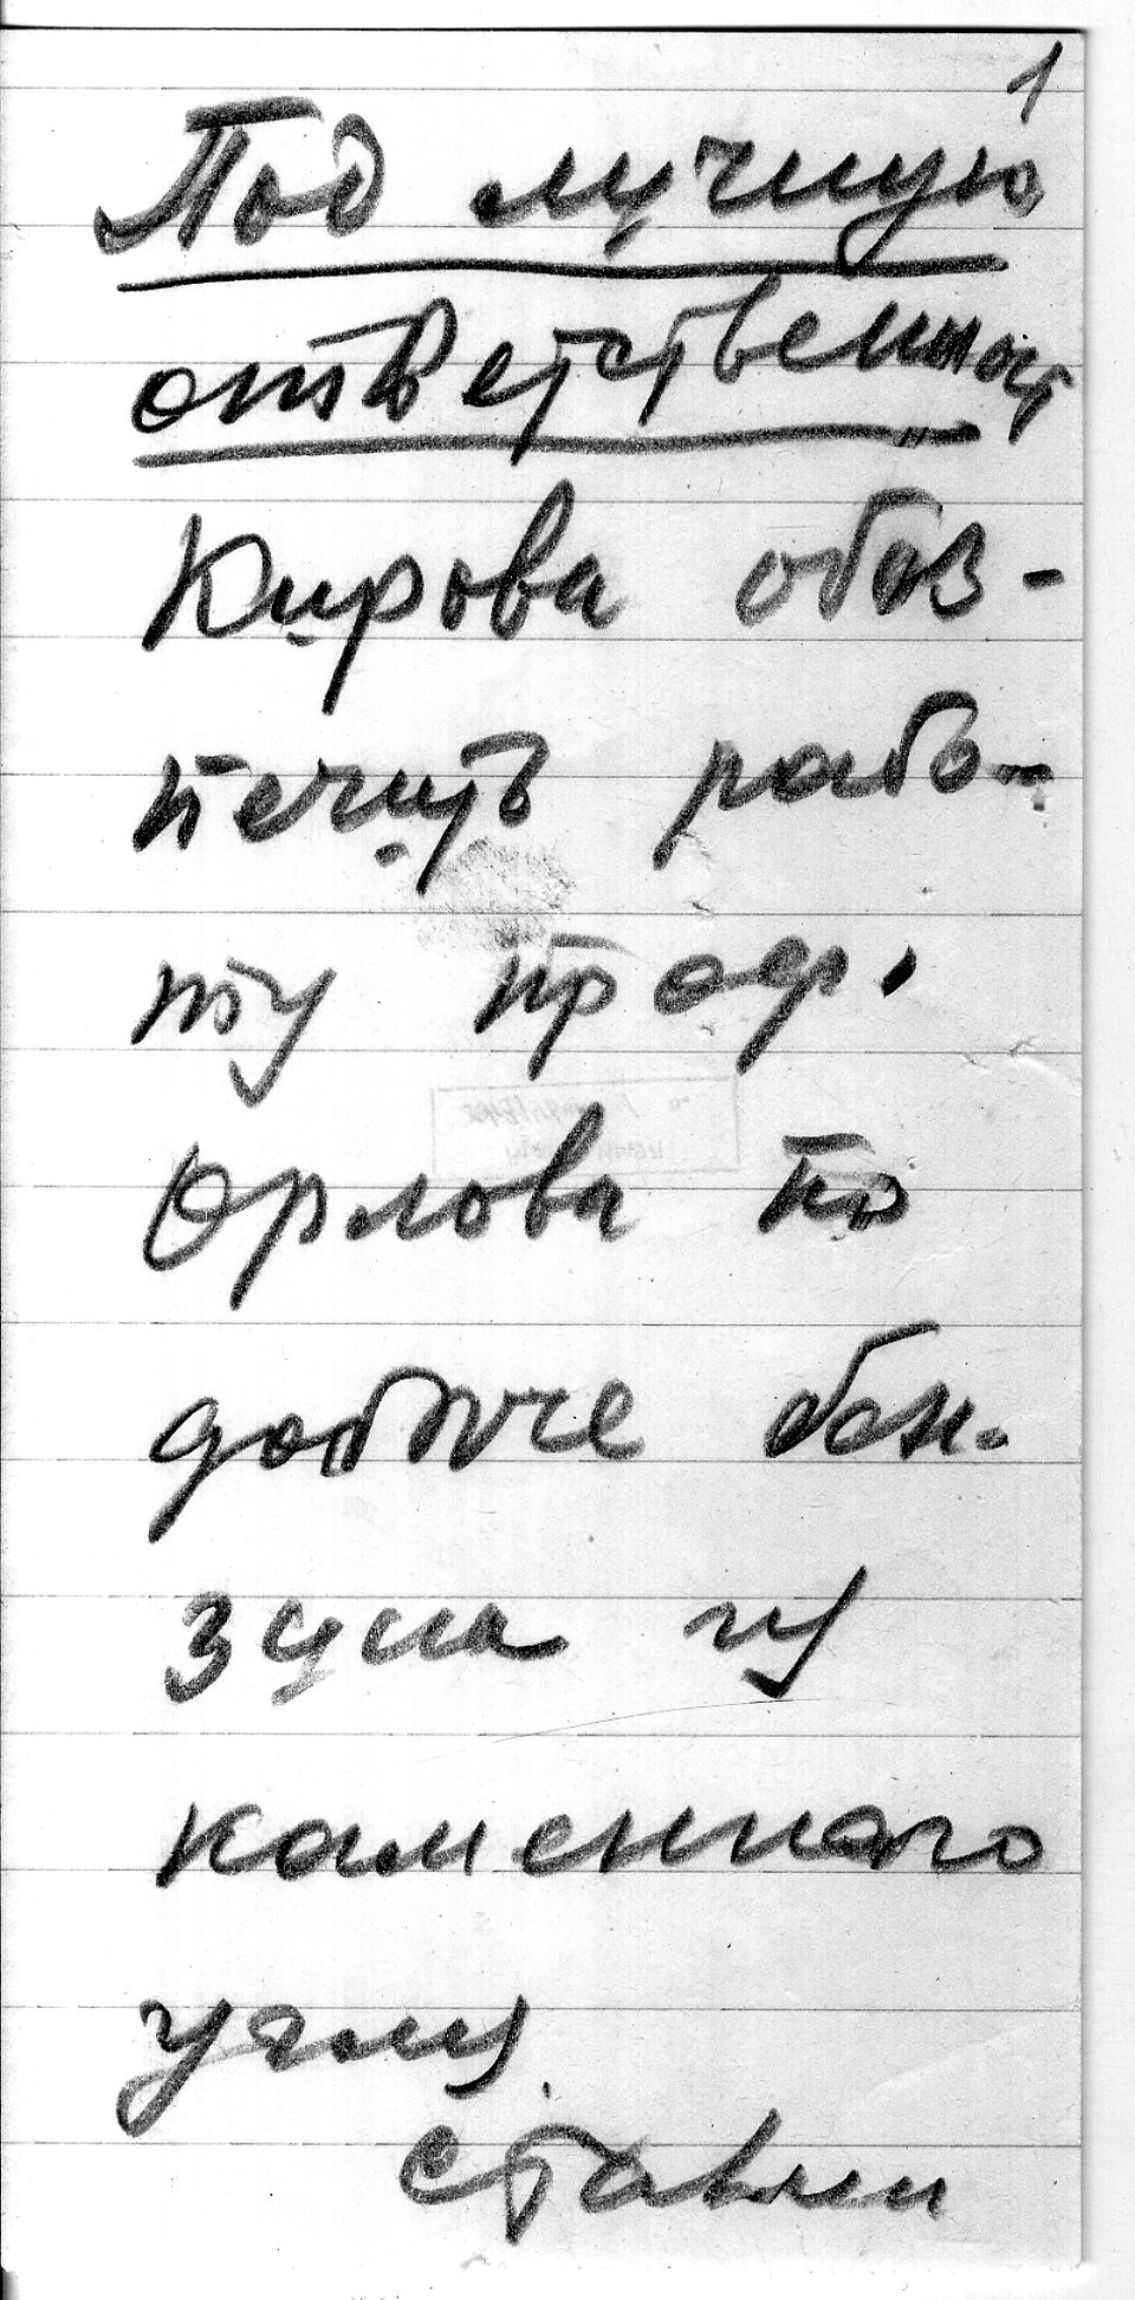 1
Под личную
ответственност
Кирова обез-
печить рабо-
ту проф.
Орлова по
добыче бен-
зина из
каменного
угля
Сталин